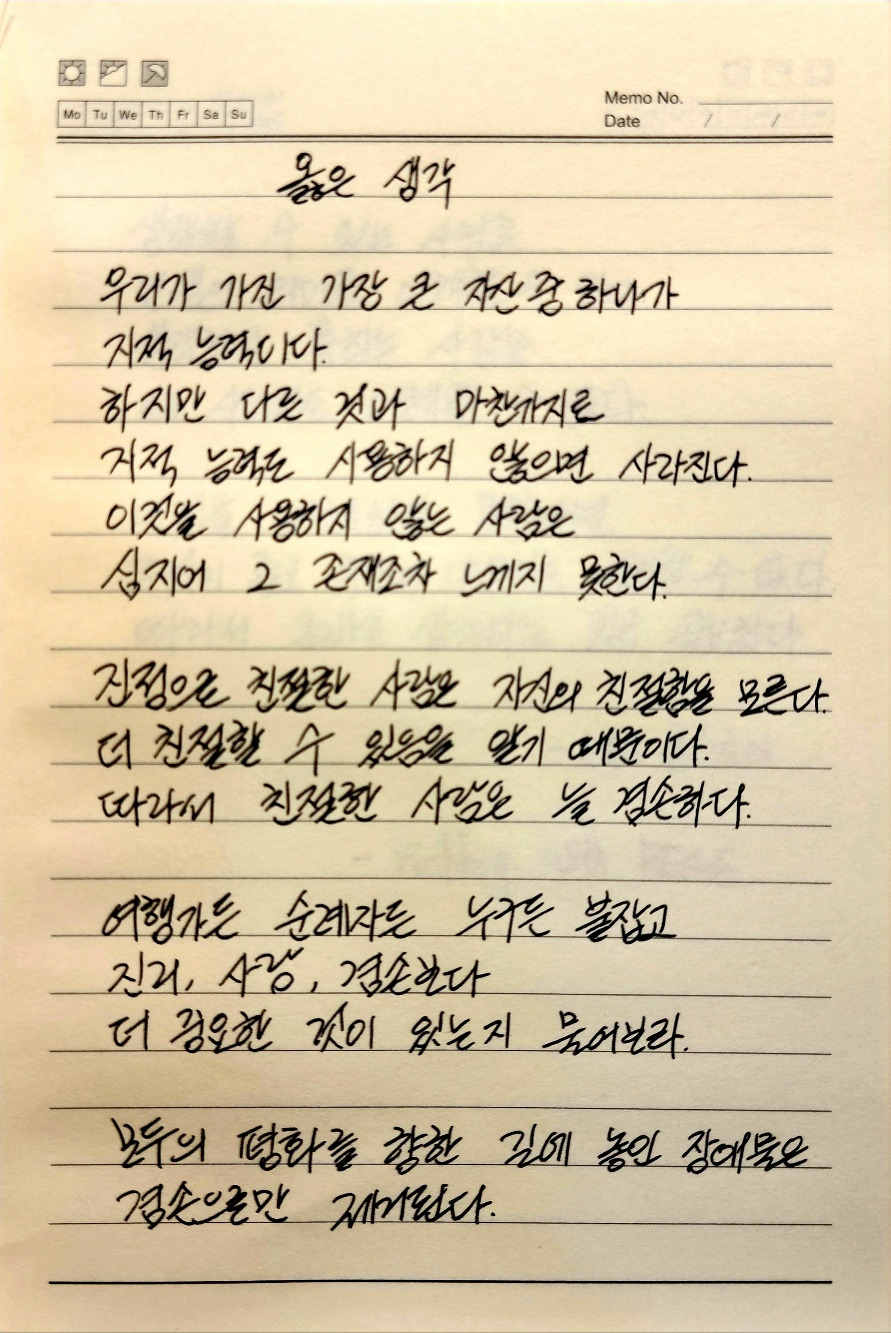 Mo Tu We Th Fr Sa Su
Memo No.
Date / /
옳은 생각
우리가 가진 가장 큰 자산 중 하나가
지적 능력이다.
하지만 다른 것과 마찬가지로
지적 능력도 사용하지 않으면 사라진다.
이것을 사용하지 않는 사람은
심지어 그 존재조차 느끼지 못한다.
진정으로 친절한 사람은 자신의 친절함을 모른다.
더 친절할 수 있음을 알기 때문이다.
따라서 친절한 사람은 늘 겸손하다.
여행가든 순례자든 누구든 붙잡고
진리, 사랑, 겸손보다
더 중요한 것이 있는지 물어보라.
모두의 평화를 향한 길에 놓인 장애물은
겸손으로만 제거된다.